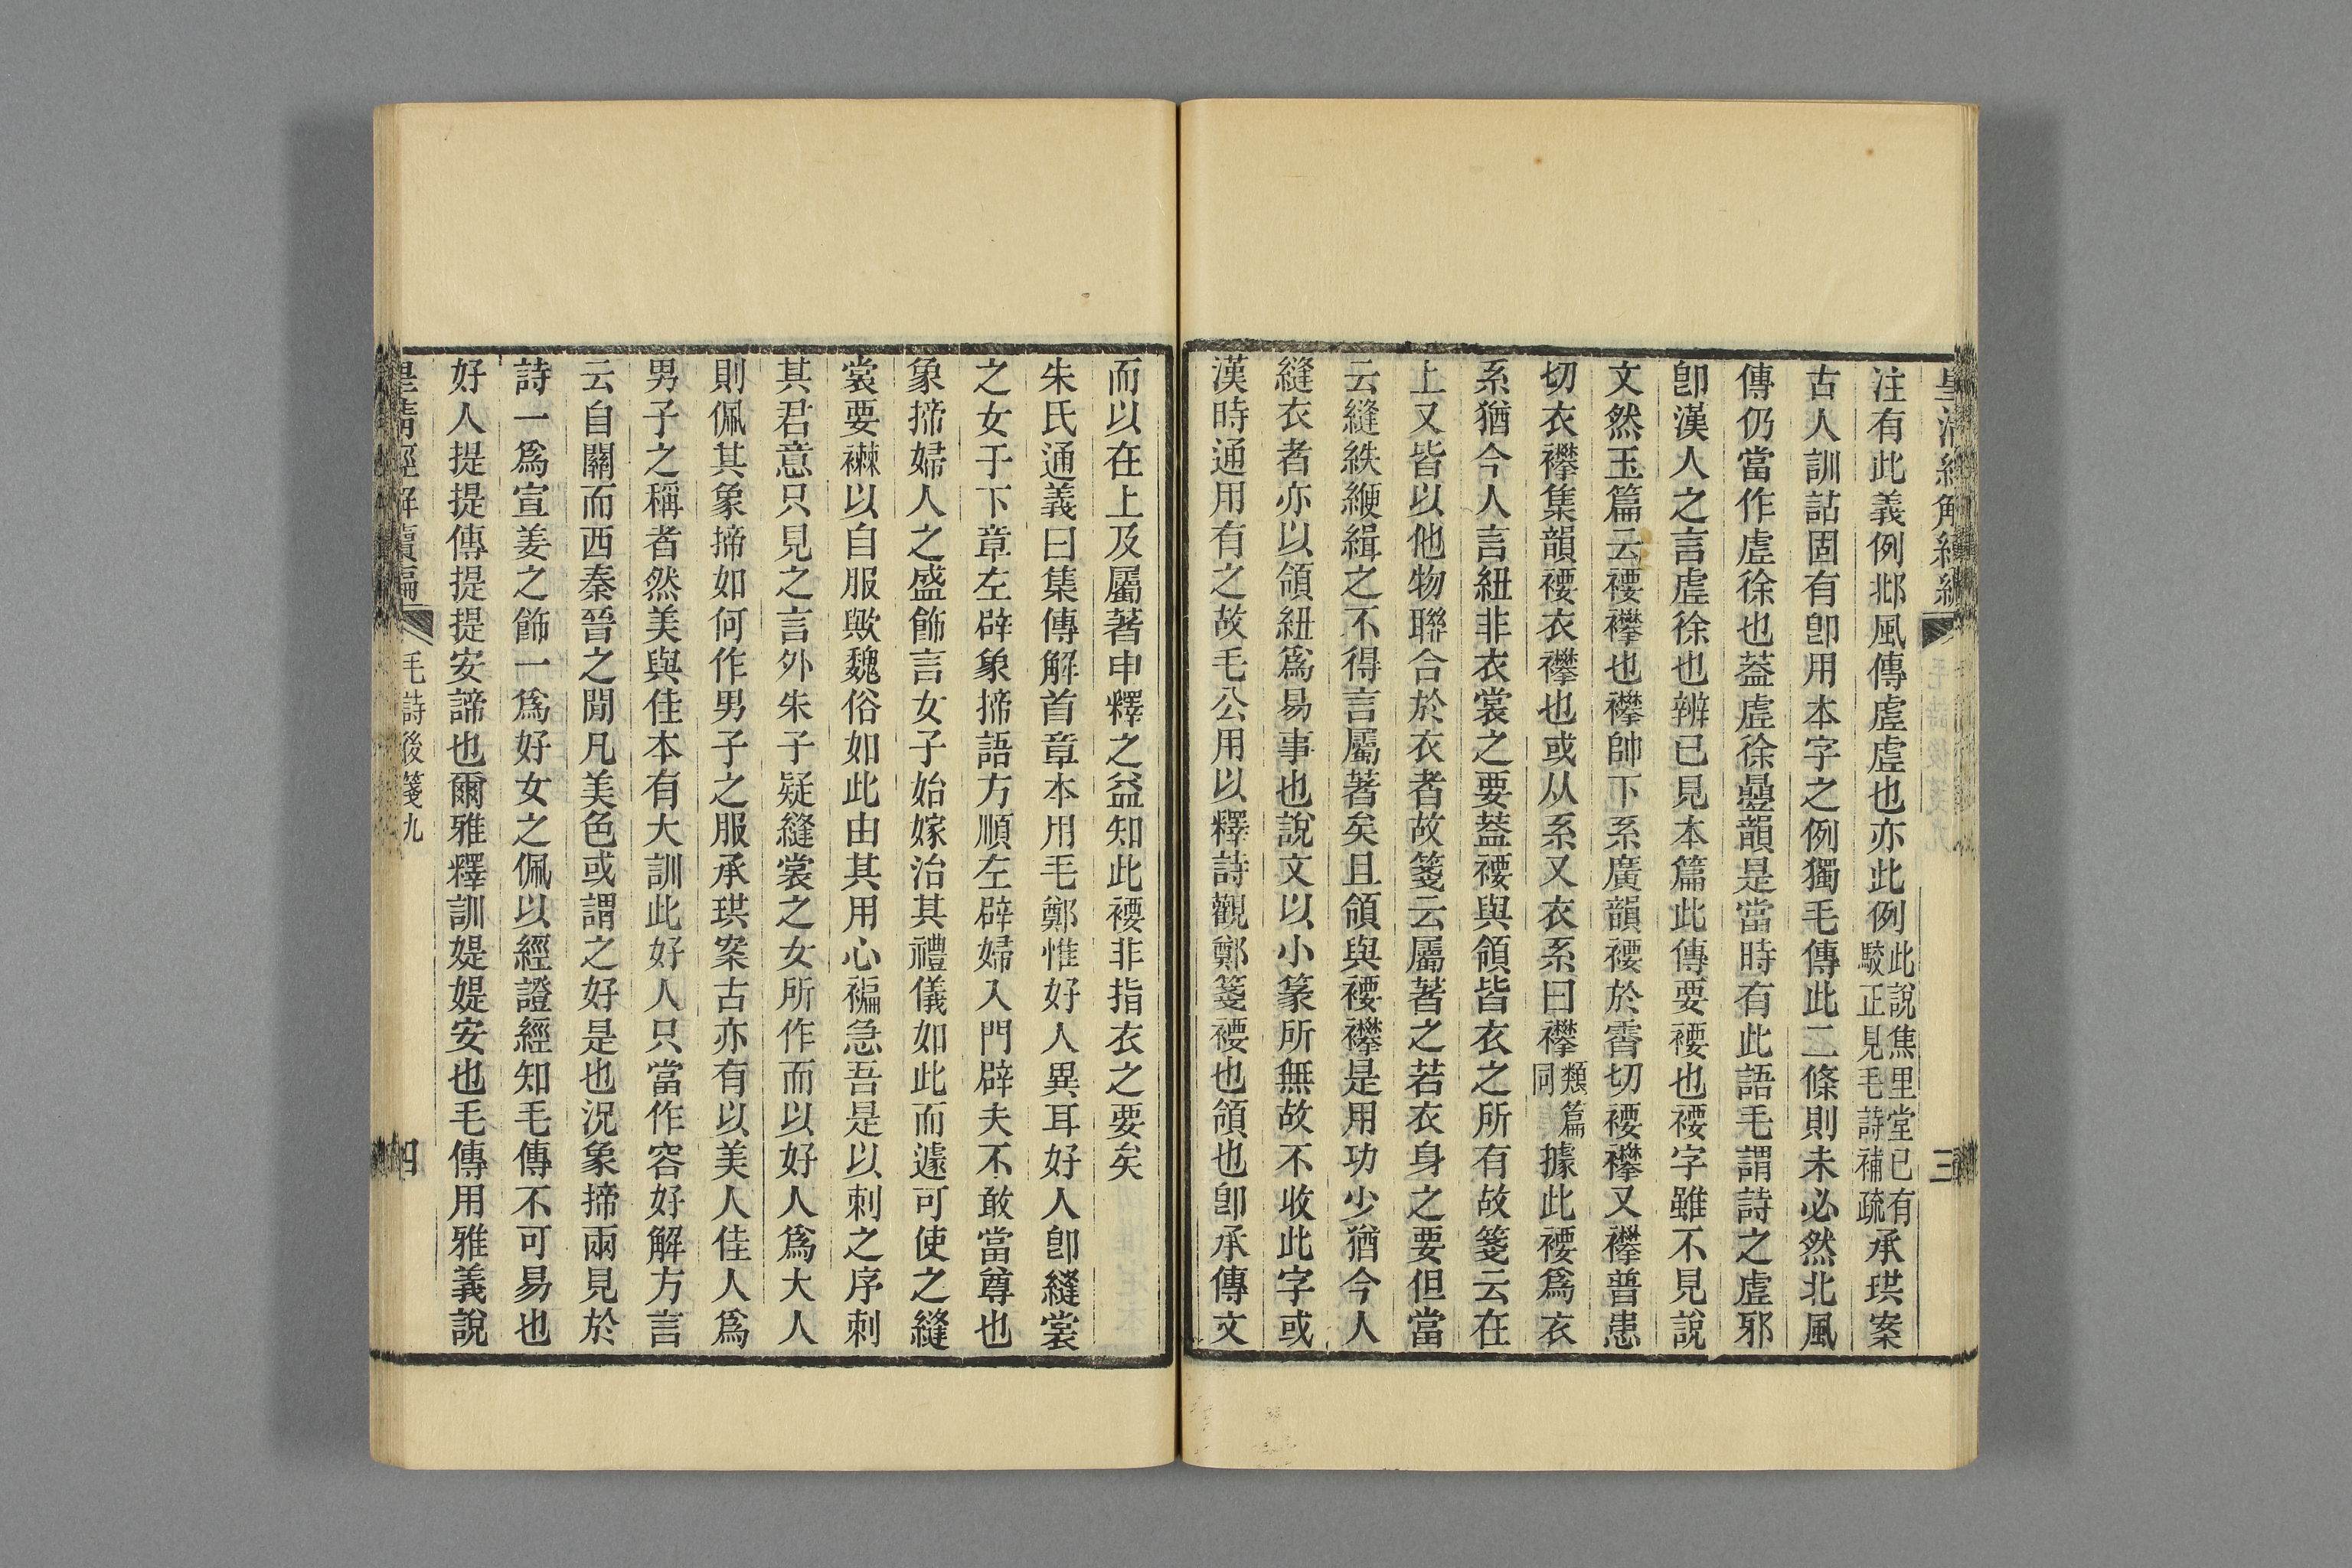 注有此義例邶風傳虛虛也亦此例此說焦里堂已有駁正見毛詩補疏承珙案
古人訓詁固有卽用本字之例獨毛傳此二條則未必然北風
傳仍當作虛徐也葢虛徐曡韻是當時有此語毛謂詩之虛邪
卽漢人之言虛徐也辨已見本篇此傳要褄也褄字雖不見說
文然玉篇云褄襻也襻帥下系廣韻褄於霄切褄襻又襻普患
切衣襻集韻褄衣襻也或从系又衣系曰襻類篇同據此褄爲衣
系猶今人言紐非衣裳之要葢褄與領皆衣之所有故箋云在
上又皆以他物聯合於衣者故箋云屬著之若衣身之要但當
云縫紩緶緝之不得言屬著矣且領與褄襻是用功少猶今人
縫衣者亦以領紐爲易事也說文以小篆所無故不收此字或
漢時通用有之故毛公用以釋詩觀鄭箋褄也領也卽承傳文
而以在上及屬著申釋之益知此褄非指衣之要矣
朱氏通義曰集傳解首章本用毛鄭惟好人異耳好人卽縫裳
之女于下章左辟象揥語方順左辟婦入門辟夫不敢當尊也
象揥婦人之盛飾言女子始嫁治其禮儀如此而遽可使之縫
裳要襋以自服歟魏俗如此由其用心褊急吾是以刺之序刺
其君意只見之言外朱子疑縫裳之女所作而以好人爲大人
則佩其象揥如何作男子之服承珙案古亦有以美人佳人爲
男子之稱者然美與佳本有大訓此好人只當作容好解方言
云自關而西秦晉之閒凡美色或謂之好是也況象揥兩見於
詩一爲宣姜之飾一爲好女之佩以經證經知毛傳不可易也
好人提提傳提提安諦也爾雅釋訓媞媞安也毛傳用雅義說
皇清經解續編
毛詩後箋九
四